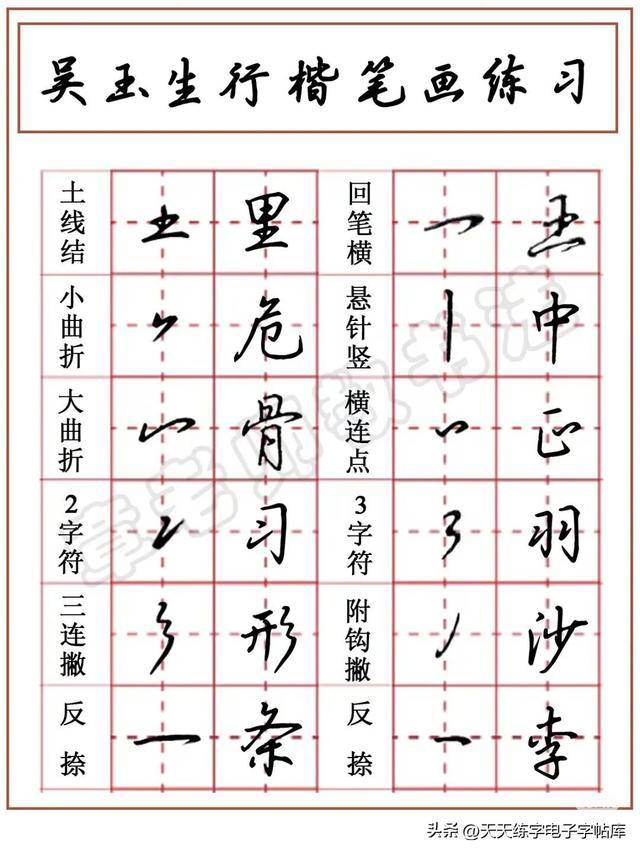 吴玉生行楷笔画练习
土线结 里 回笔横 王
小曲折 危 悬针竖 中
大曲折 骨 横连点 正
2字符 习 3字符 羽
三连撇 形 附钩撇 沙
反捺 条 反捺 李
章老师教书法
头条 @天天练字电子字帖库